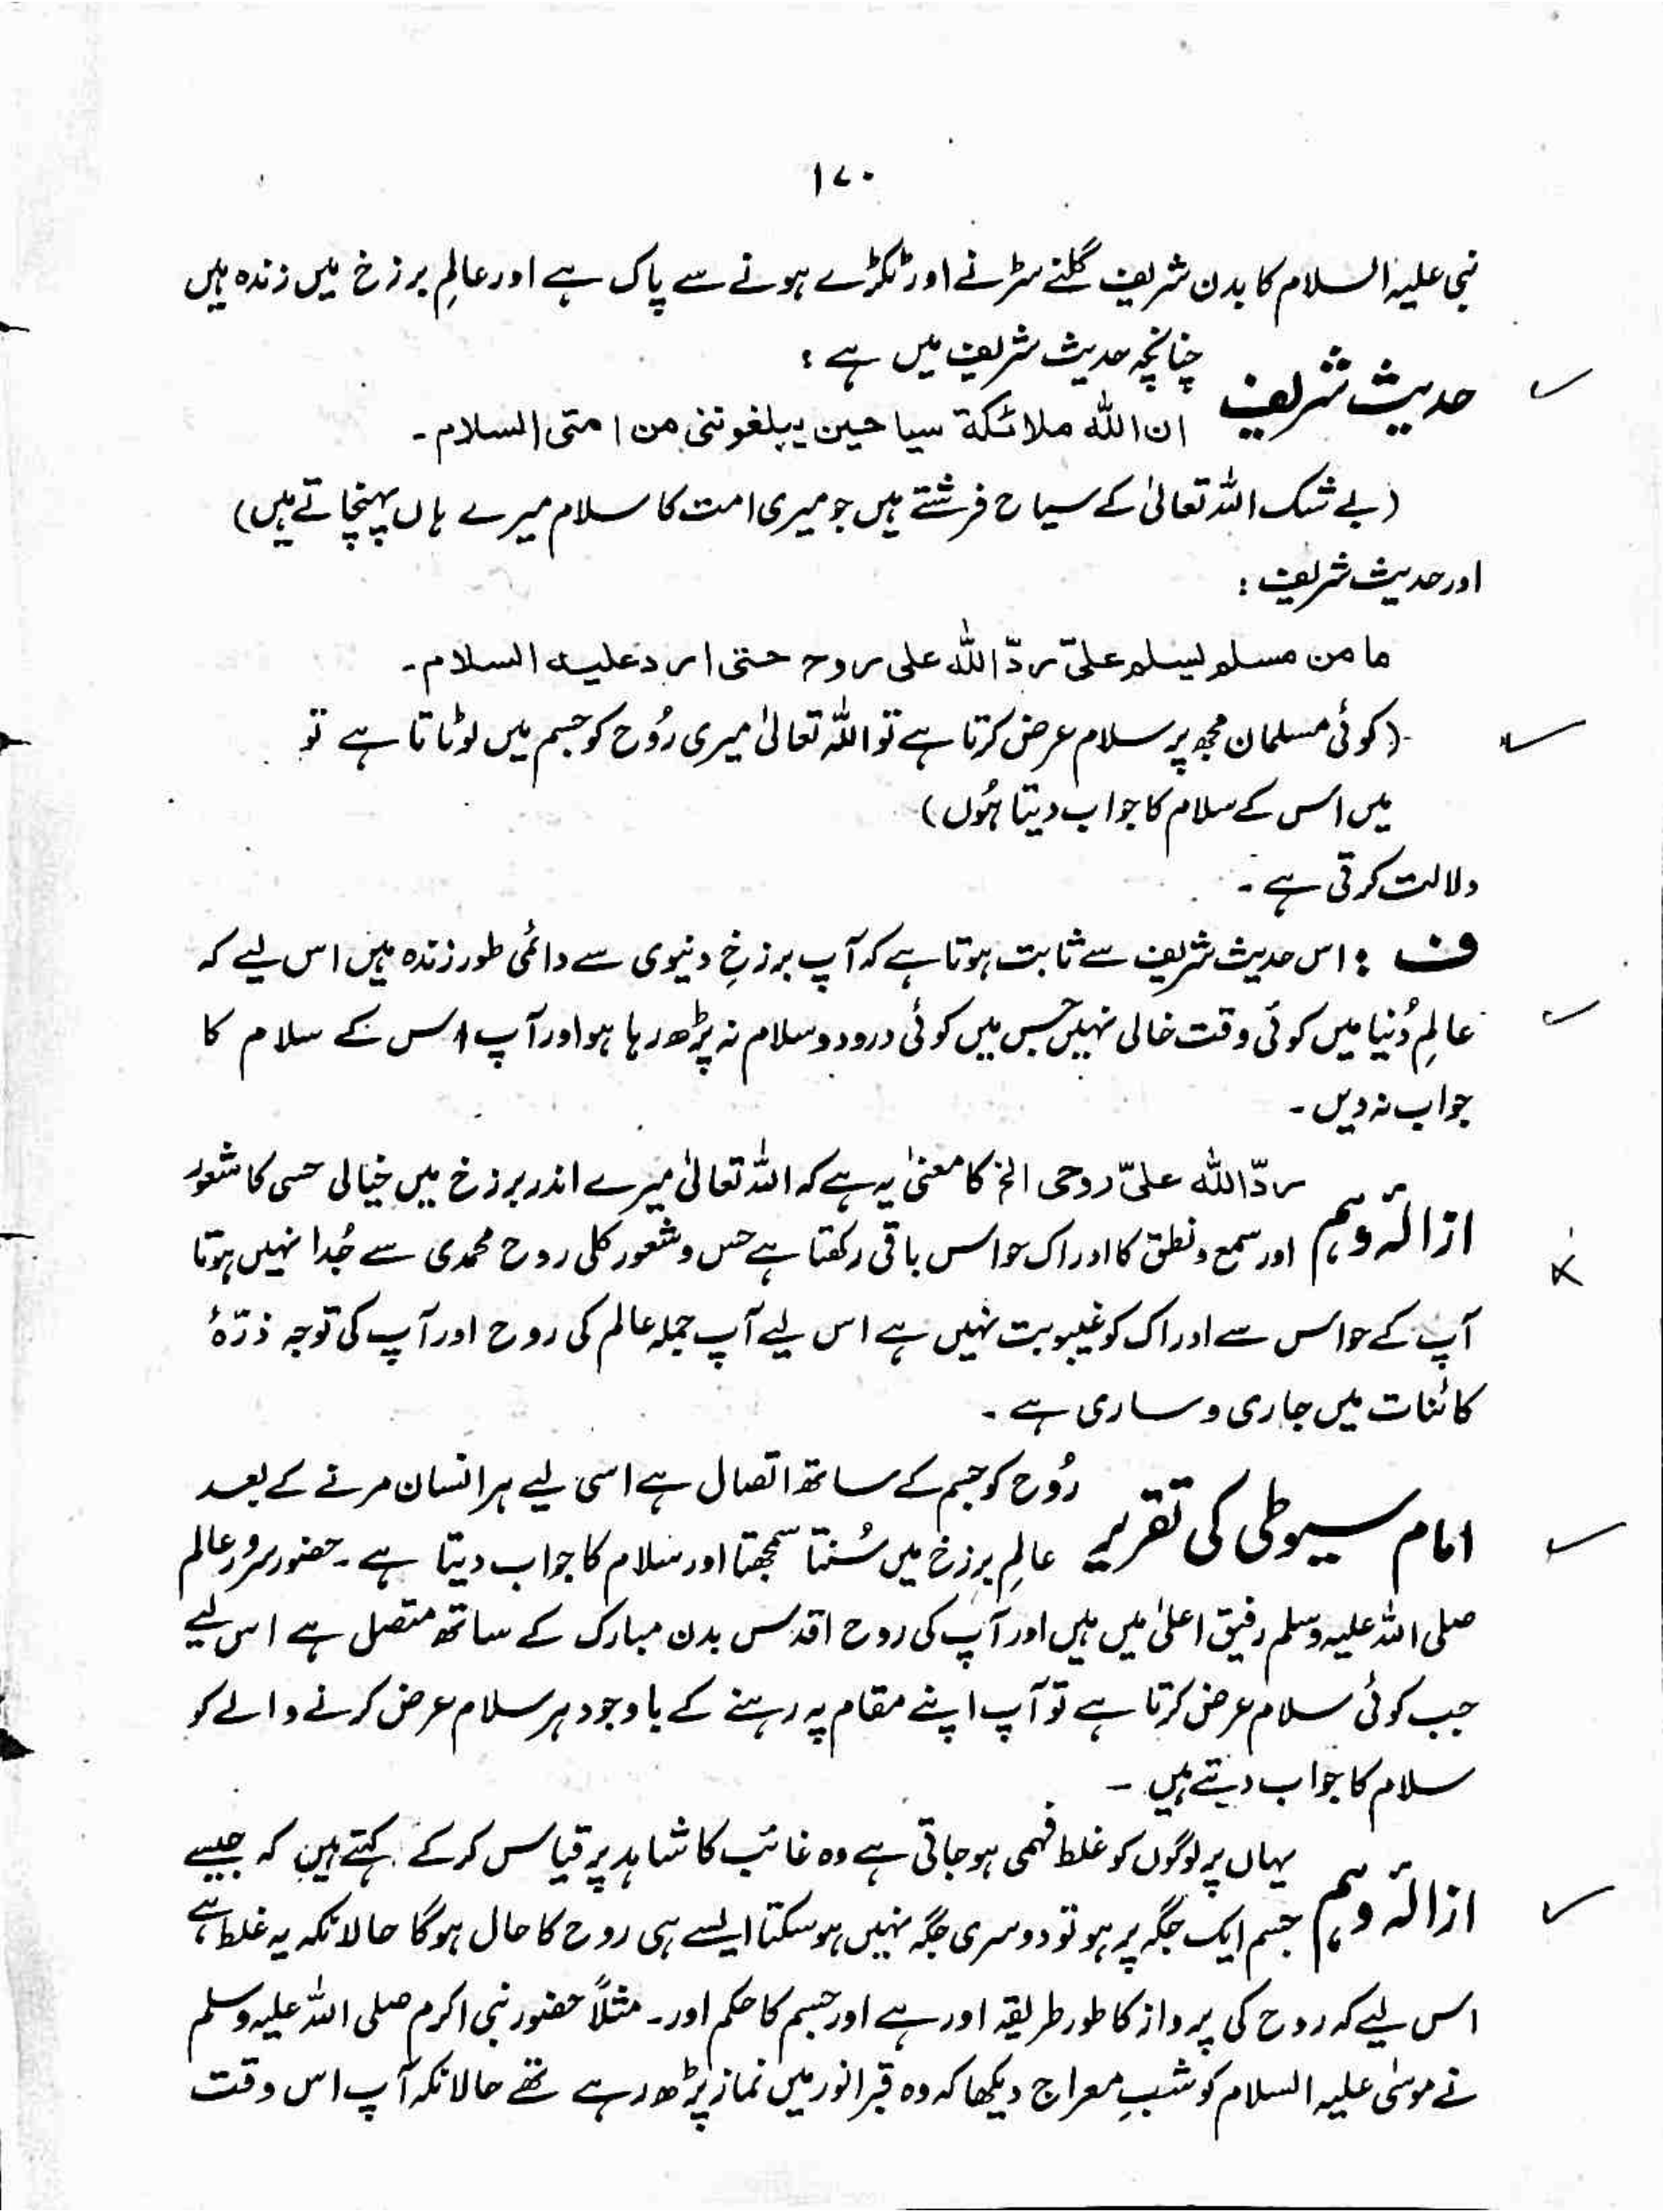 ۱۷۰
نبی علیہ السلام کا بدن شریف گلنے سڑنے اور ٹکڑے ہونے سے پاک ہے اور عالمِ برزخ میں زندہ ہیں
حدیث شریف چنانچہ حدیث شریف میں ہے :
ان اللّٰہ ملائکة سیاحین یبلغوننی من امتی السلام۔
(بے شک اللہ تعالیٰ کے سیاح فرشتے ہیں جو میری امت کا سلام میرے ہاں پہنچاتے ہیں)
اور حدیث شریف :
ما من مسلم یسلم علیّ ردّ اللّٰہ علی روح حتی ارد علیہ السلام۔
(کوئی مسلمان مجھ پر سلام عرض کرتا ہے تو اللہ تعالیٰ میری رُوح کو جسم میں لوٹاتا ہے تو
میں اس کے سلام کا جواب دیتا ہُوں)
دلالت کرتی ہے۔
ف : اس حدیث شریف سے ثابت ہوتا ہے کہ آپ برزخِ دنیوی سے دائمی طور زندہ ہیں اس لیے کہ
عالمِ دُنیا میں کوئی وقت خالی نہیں جس میں کوئی درود و سلام نہ پڑھ رہا ہو اور آپ اس کے سلام کا
جواب نہ دیں۔
ازالۂ وہم ردّ اللّٰہ علیّ روحی الخ کا معنیٰ یہ ہے کہ اللہ تعالیٰ میرے اندر برزخ میں خیالی حسی کا شعور
اور سمع و نطق کا ادراک حواس باقی رکھتا ہے حس و شعور کلی روح محمدی سے جُدا نہیں ہوتا
آپ کے حواس سے ادراک کو غیبوبت نہیں ہے اس لیے آپ جملہ عالم کی روح اور آپ کی توجہ ذرّۂ
کائنات میں جاری و ساری ہے۔
امام سیوطی کی تقریر رُوح کو جسم کے ساتھ اتصال ہے اسی لیے ہر انسان مرنے کے بعد
عالمِ برزخ میں سُنتا سمجھتا اور سلام کا جواب دیتا ہے۔ حضور سرورِ عالم
صلی اللہ علیہ وسلم رفیق اعلیٰ میں ہیں اور آپ کی روح اقدس بدن مبارک کے ساتھ متصل ہے اس لیے
جب کوئی سلام عرض کرتا ہے تو آپ اپنے مقام پہ رہنے کے باوجود ہر سلام عرض کرنے والے کو
سلام کا جواب دیتے ہیں۔
ازالۂ وہم یہاں پر لوگوں کو غلط فہمی ہو جاتی ہے وہ غائب کا شاہد پر قیاس کر کے کہتے ہیں کہ جیسے
جسم ایک جگہ پر ہو تو دوسری جگہ نہیں ہو سکتا ایسے ہی روح کا حال ہوگا حالانکہ یہ غلط ہے
اس لیے کہ روح کی پرواز کا طور طریقہ اور ہے اور جسم کا حکم اور۔ مثلاً حضور نبی اکرم صلی اللہ علیہ وسلم
نے موسیٰ علیہ السلام کو شبِ معراج دیکھا کہ وہ قبر انور میں نماز پڑھ رہے تھے حالانکہ آپ اس وقت